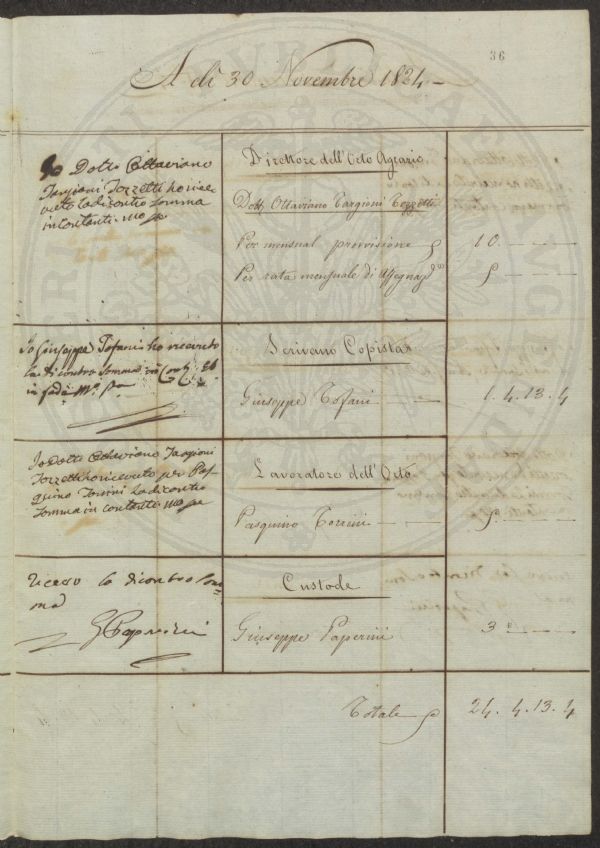 36
A dì 30 Novembre 1824
Io Dotto Ottaviano
Targioni Tozzetti ho rice
vuto la dicontro Somma
in contanti mo pa
Direttore dell'Orto Agrario
Dott. Ottaviano Targioni Tozzetti
Per mensual provvisione 10.
Per rata mensuale di
Io Giuseppe Tofani ho ricevuto
la dicontro Somma in
in fede Mo pa
Scrivano Copista
Giuseppe Tofani 1. 4. 13. 4
Io Dotto Ottaviano Targioni
Tozzetti ho ricevuto per Pas-
quino Torrini la dicontro
Somma in contanti mo pa
Lavoratore dell'Orto
Pasquino Torrini
ricevo la dicontro som
ma
G Paperini
Custode
Giuseppe Paperini 3
Totale 24. 4. 13. 4